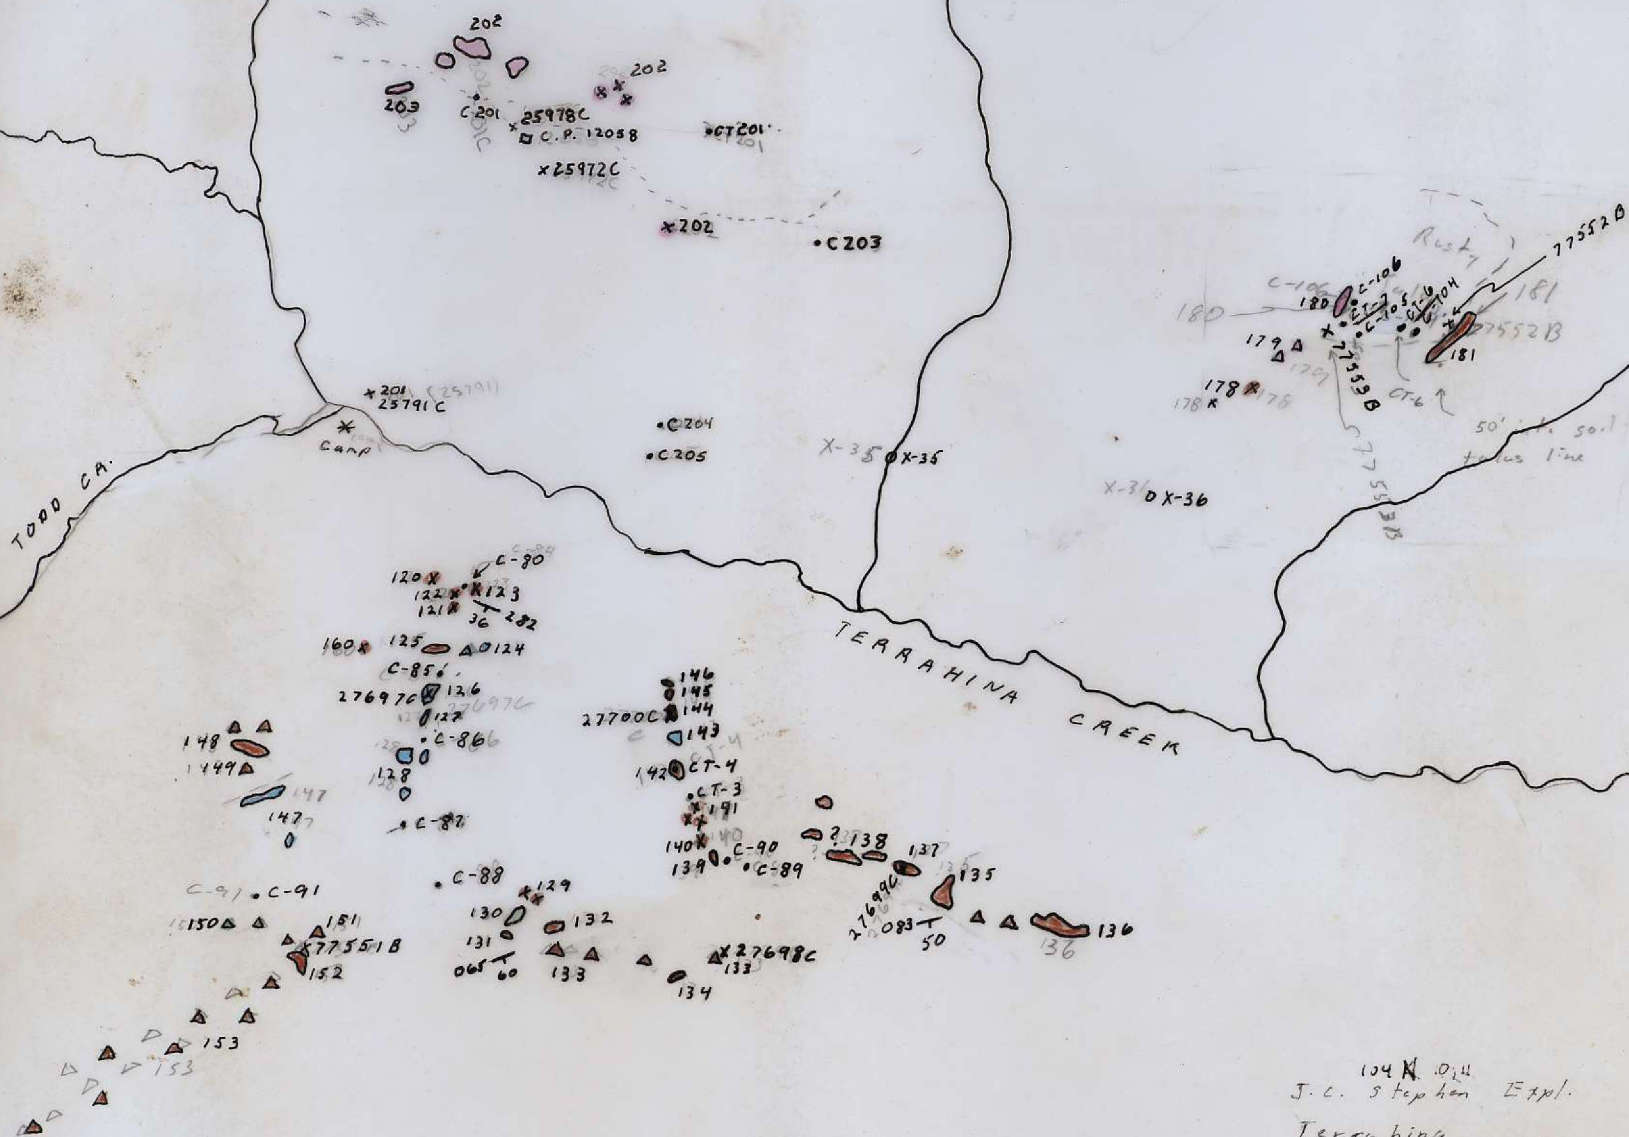 202
202
203
C-201
25978C
C.P. 12058
CT201
x25972C
x202
C203
77552B
Rusty
C-106
C-106
180
180
CT-7
C-105
CT-6
C-104
181
77552B
181
179
179
77553B
77553B
178
178
178
CT-6
50' into soil
talus line
x201 (25791)
25791C
Camp
C204
C205
X-35
X-35
X-36
TODD CR.
C-80
120
122
123
121
36
282
160
125
124
C-85
27697C
126
27697C
127
C-86
128
128
148
149
147
147
C-87
146
145
144
27700C
143
CT-4
142
CT-4
CT-3
191
140
140
139
C-90
C-89
TERRAHINA CREEK
?
138
137
135
27699C
083
50
136
136
C-91
C-91
C-88
129
130
132
131
065
60
133
134
x27698C
133
150
151
x77551B
152
153
153
104N
J.C. Stephen Expl.
Terrahina